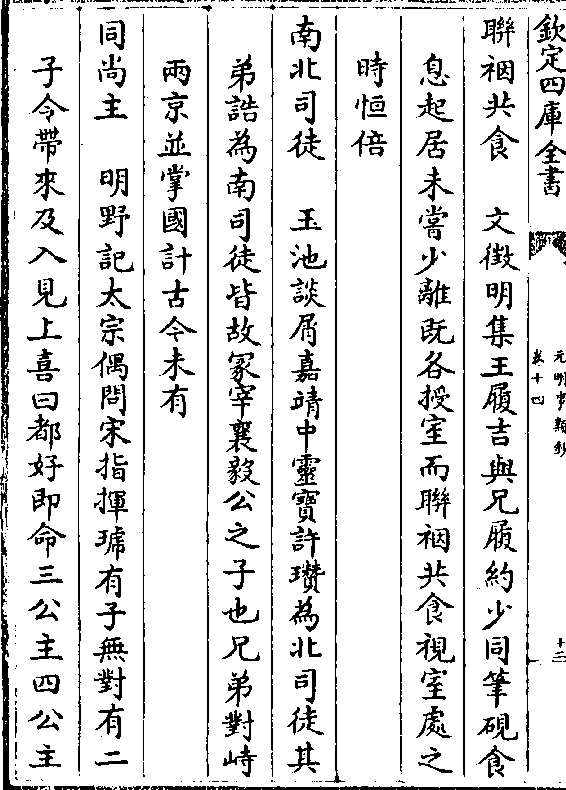 欽定四庫全書
元明事類鈔
卷十四
十二
聯裀共食　文徵明集王履吉與兄履約少同筆硯食
息起居未嘗少離既各授室而聯裀共食視室處之
時恒倍
南北司徒　玉池談屑嘉靖中靈寶許瓚為北司徒其
弟誥為南司徒皆故冢宰襄毅公之子也兄弟對峙
兩京並掌國計古今未有
同尚主　明野記太宗偶問宋指揮琥有子無對有二
子令帶來及入見上喜曰都好即命三公主四公主